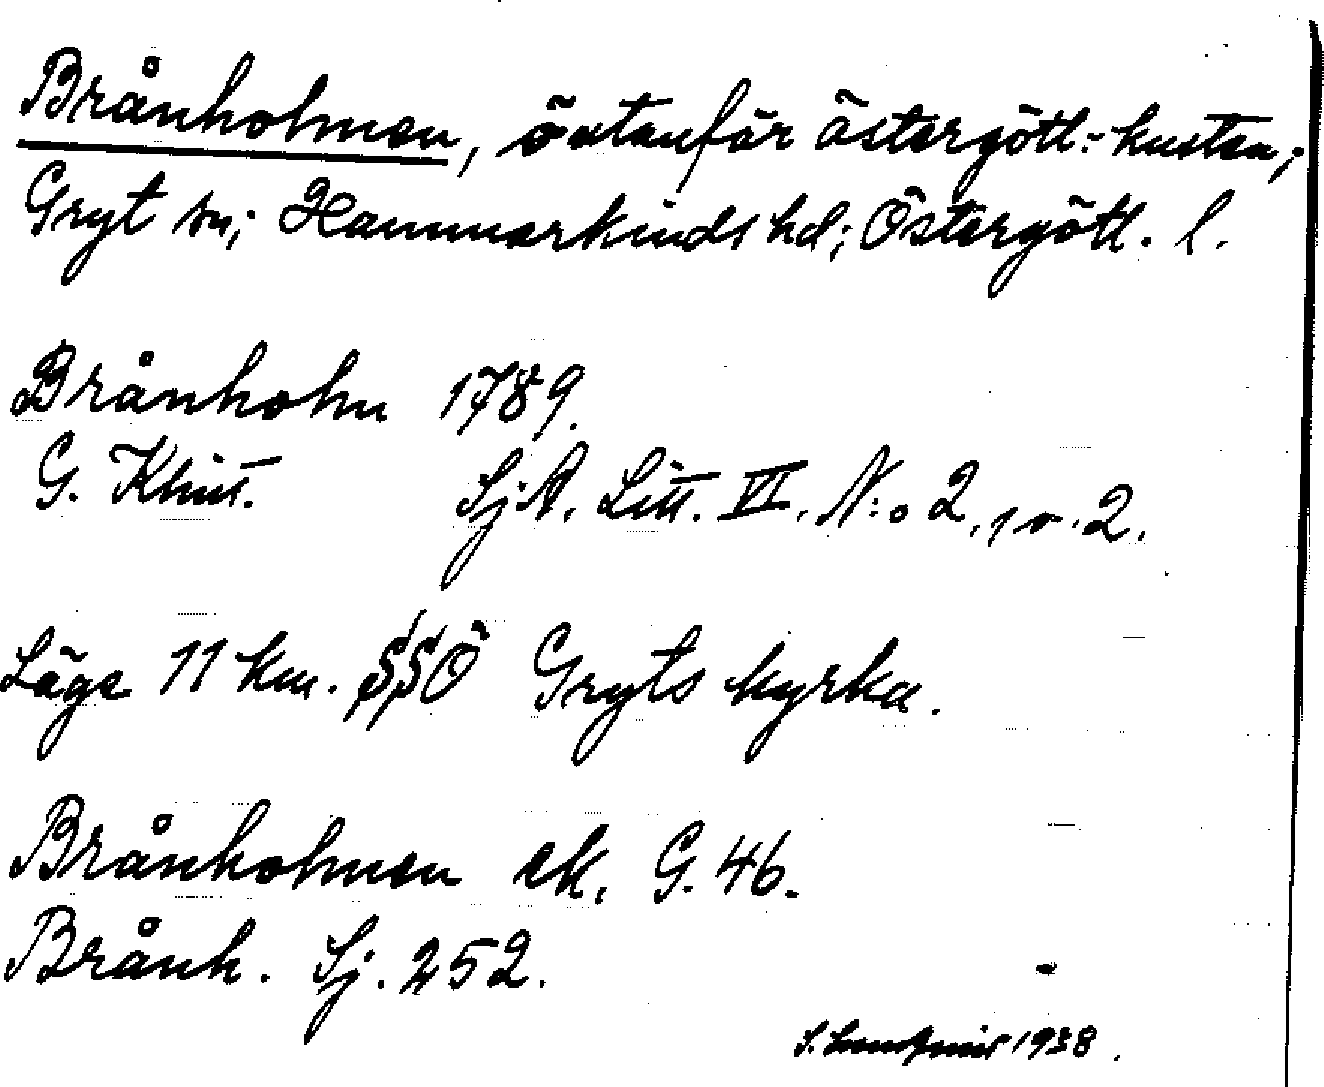 Brånholmen, östanför östergötl:-kusten;
Gryt sn; Hammarkinds hd; Östergötl. l.
Brånholm 1789.
G. Klint. SjA. Litt. VI. N:o 2, 1 o. 2.
Läge 11 km. SSÖ Gryts kyrka.
Brånholmen ek. G. 46.
Brånh. Sj. 252.
S. 1938.